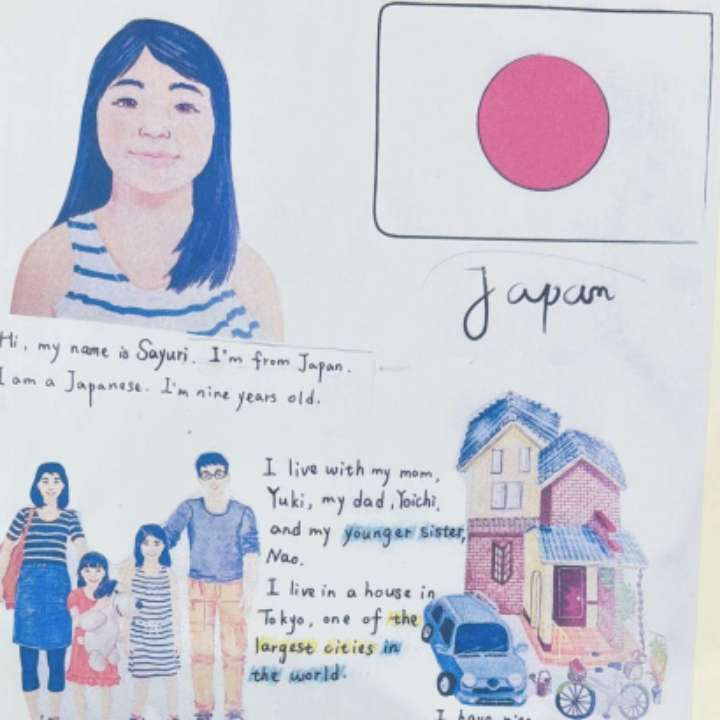 Japan
Hi, my name is Sayuri. I'm from Japan.
I am a Japanese. I'm nine years old.
I live with my mom,
Yuki, my dad, Yoichi,
and my younger sister,
Nao.
I live in a house in
Tokyo, one of the
largest cities in
the world.
I have